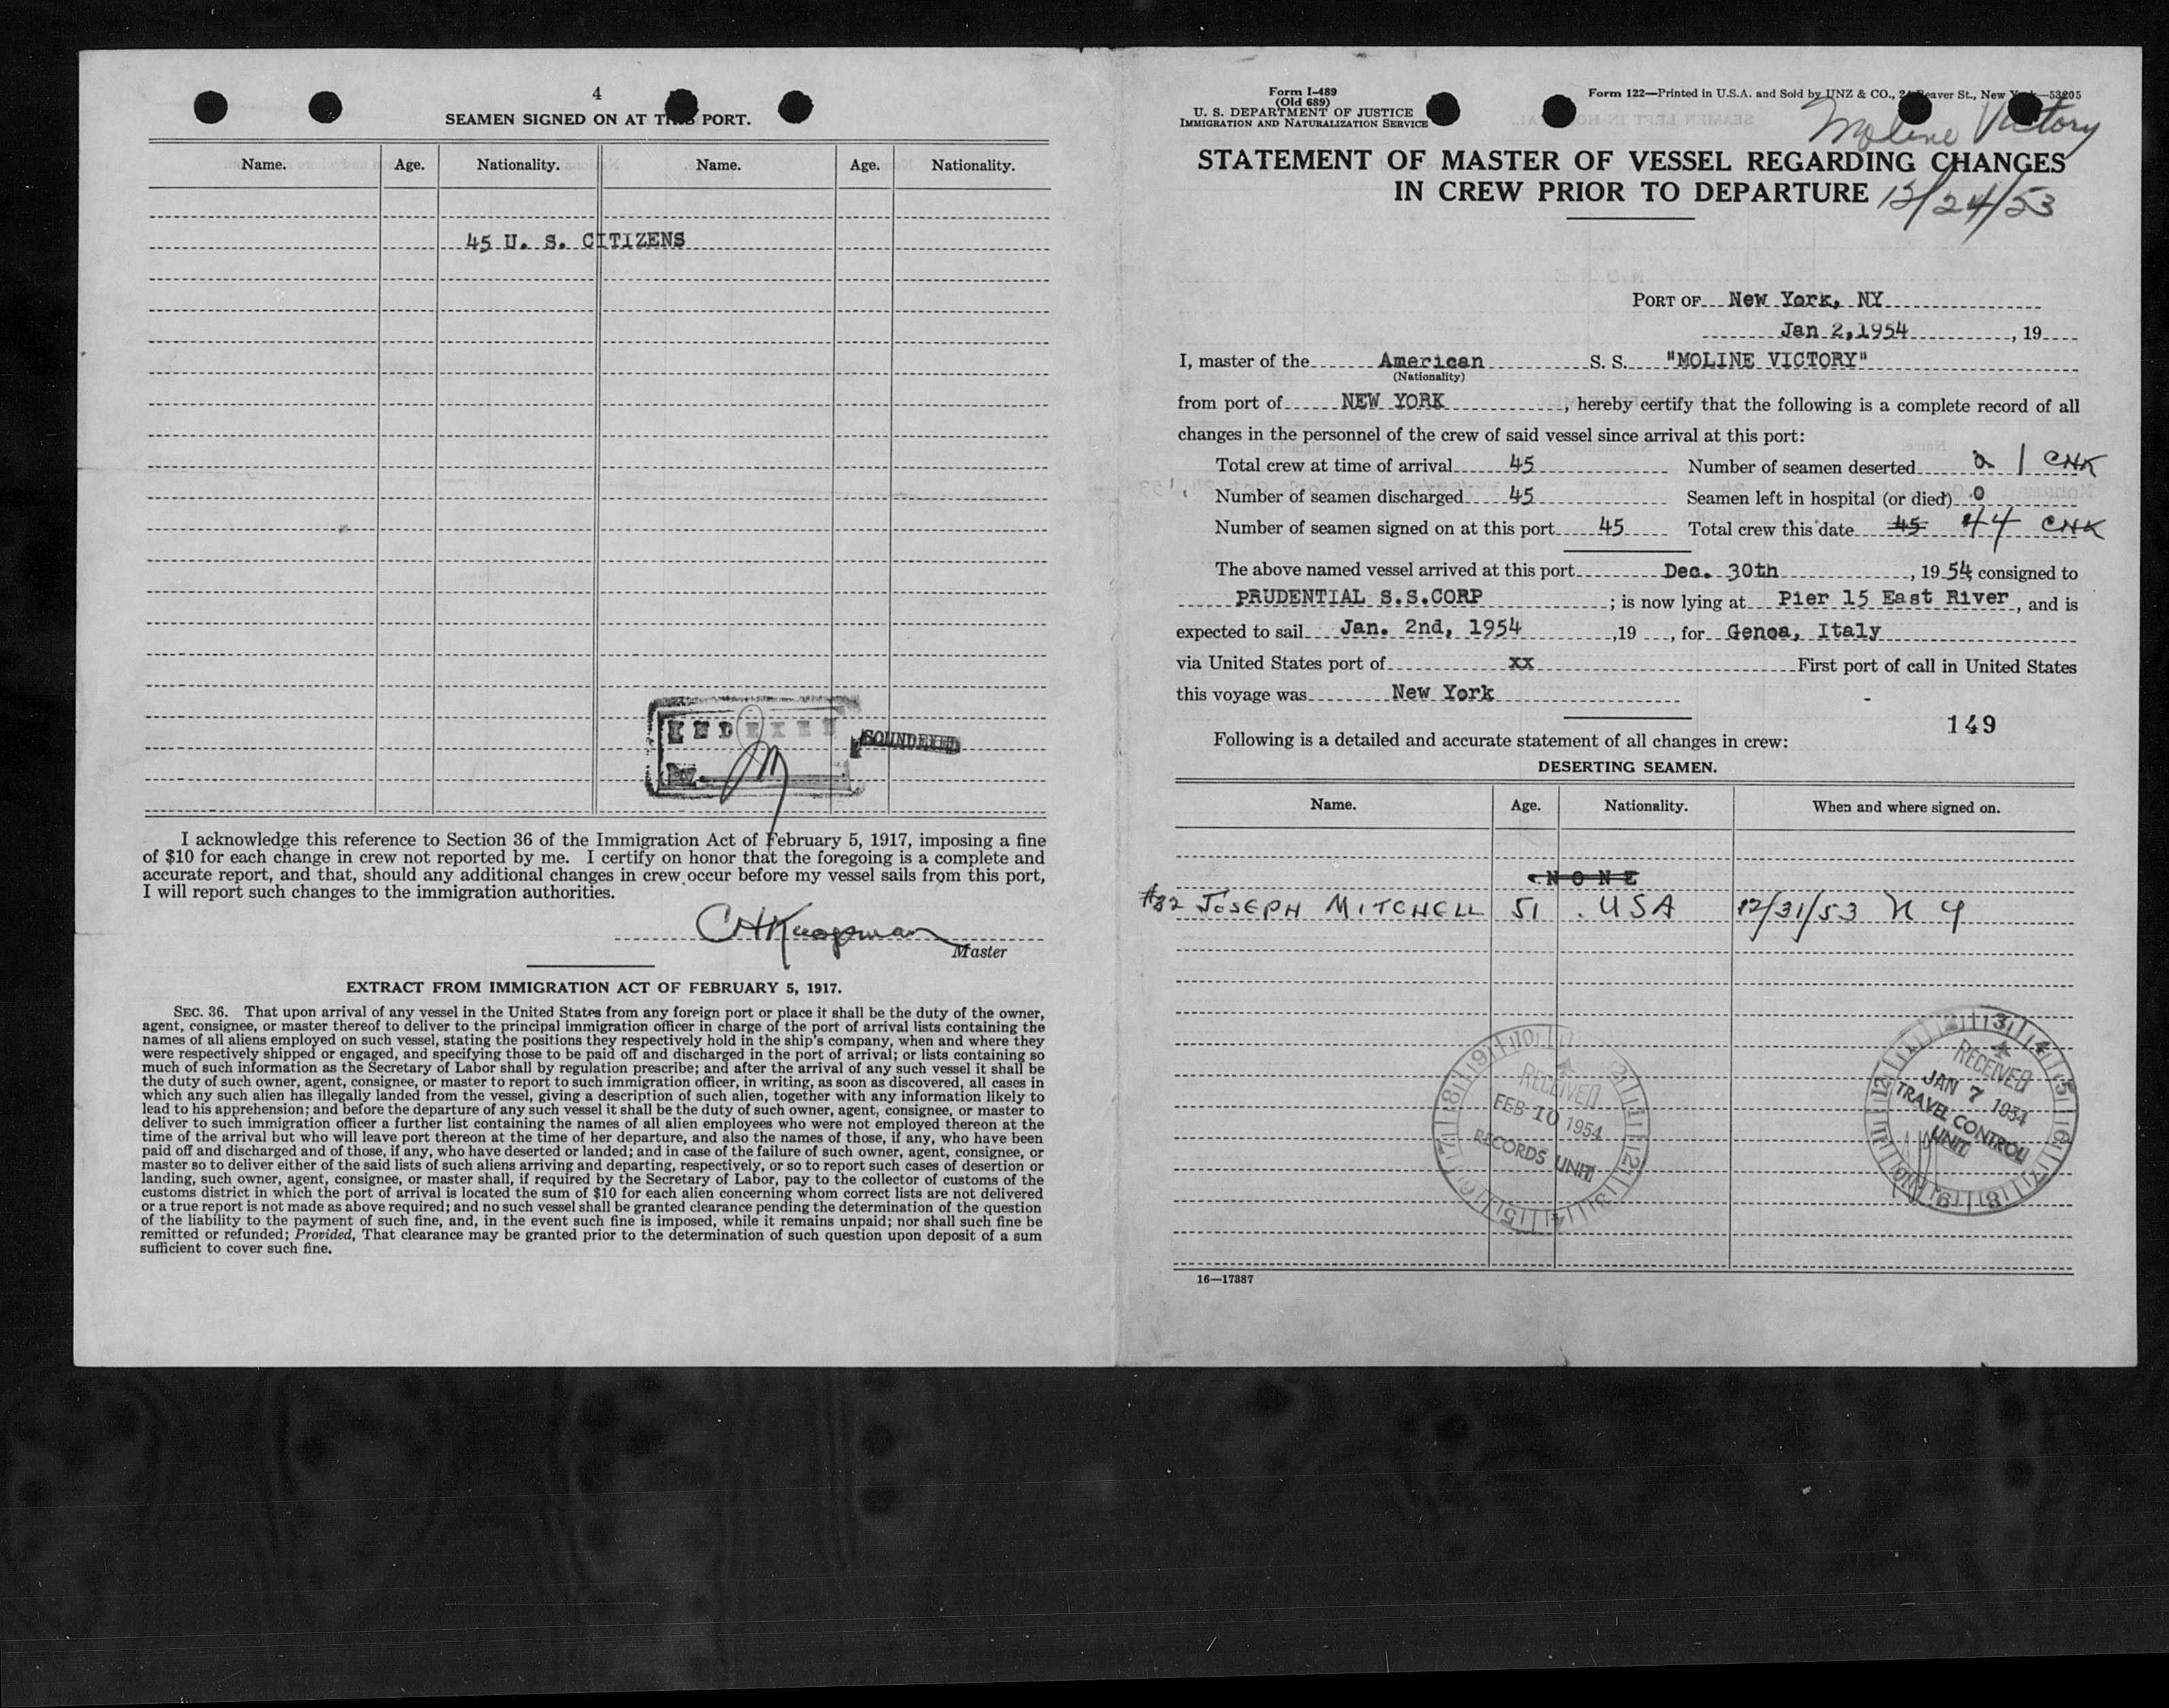 4
SEAMEN SIGNED ON AT THIS PORT.
Name. Age. Nationality. Name. Age. Nationality.
45 U. S. CITIZENS
INDEXED
By
SOUNDEXED
I acknowledge this reference to Section 36 of the Immigration Act of February 5, 1917, imposing a fine
of $10 for each change in crew not reported by me. I certify on honor that the foregoing is a complete and
accurate report, and that, should any additional changes in crew occur before my vessel sails from this port,
I will report such changes to the immigration authorities.
CHKoopman
Master
EXTRACT FROM IMMIGRATION ACT OF FEBRUARY 5, 1917.
SEC. 36. That upon arrival of any vessel in the United States from any foreign port or place it shall be the duty of the owner,
agent, consignee, or master thereof to deliver to the principal immigration officer in charge of the port of arrival lists containing the
names of all aliens employed on such vessel, stating the positions they respectively hold in the ship's company, when and where they
were respectively shipped or engaged, and specifying those to be paid off and discharged in the port of arrival; or lists containing so
much of such information as the Secretary of Labor shall by regulation prescribe; and after the arrival of any such vessel it shall be
the duty of such owner, agent, consignee, or master to report to such immigration officer, in writing, as soon as discovered, all cases in
which any such alien has illegally landed from the vessel, giving a description of such alien, together with any information likely to
lead to his apprehension; and before the departure of any such vessel it shall be the duty of such owner, agent, consignee, or master to
deliver to such immigration officer a further list containing the names of all alien employees who were not employed thereon at the
time of the arrival but who will leave port thereon at the time of her departure, and also the names of those, if any, who have been
paid off and discharged and of those, if any, who have deserted or landed; and in case of the failure of such owner, agent, consignee, or
master so to deliver either of the said lists of such aliens arriving and departing, respectively, or so to report such cases of desertion or
landing, such owner, agent, consignee, or master shall, if required by the Secretary of Labor, pay to the collector of customs of the
customs district in which the port of arrival is located the sum of $10 for each alien concerning whom correct lists are not delivered
or a true report is not made as above required; and no such vessel shall be granted clearance pending the determination of the question
of the liability to the payment of such fine, and, in the event such fine is imposed, while it remains unpaid; nor shall such fine be
remitted or refunded; Provided, That clearance may be granted prior to the determination of such question upon deposit of a sum
sufficient to cover such fine.
Form I-489
(Old 689)
U. S. DEPARTMENT OF JUSTICE
IMMIGRATION AND NATURALIZATION SERVICE
Form 122—Printed in U.S.A. and Sold by UNZ & CO., 24 Beaver St., New York—53205
Moline Victory
STATEMENT OF MASTER OF VESSEL REGARDING CHANGES
IN CREW PRIOR TO DEPARTURE
12/24/53
PORT OF New York, NY
Jan 2,1954 , 19
I, master of the American S. S. "MOLINE VICTORY"
(Nationality)
from port of NEW YORK , hereby certify that the following is a complete record of all
changes in the personnel of the crew of said vessel since arrival at this port:
Total crew at time of arrival 45 Number of seamen deserted 1 CHK
Number of seamen discharged 45 Seamen left in hospital (or died) 0
Number of seamen signed on at this port 45 Total crew this date 45 44 CHK
The above named vessel arrived at this port Dec. 30th , 19 54, consigned to
PRUDENTIAL S.S.CORP ; is now lying at Pier 15 East River , and is
expected to sail Jan. 2nd, 1954 ,19 , for Genoa, Italy
via United States port of xx First port of call in United States
this voyage was New York
149
Following is a detailed and accurate statement of all changes in crew:
DESERTING SEAMEN.
Name. Age. Nationality. When and where signed on.
NONE
#32 JOSEPH MITCHELL 51 USA 12/31/53 N Y
RECEIVED
FEB 10 1954
RECORDS UNIT
RECEIVED
JAN 7 1954
TRAVEL CONTROL
UNIT
16—17887